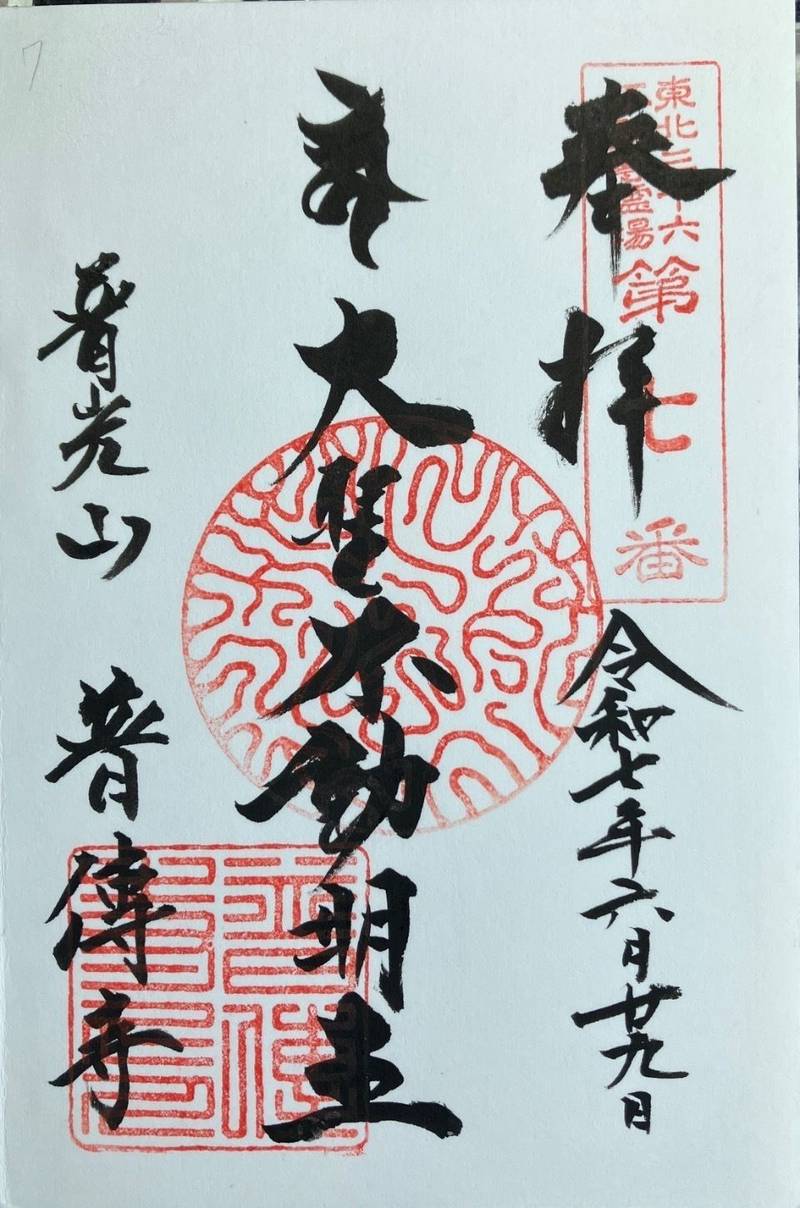 東北三十六
不動尊霊場
第七番
奉拝
令和七年六月廿九日
大聖不動明王
普光山 普傳寺
7